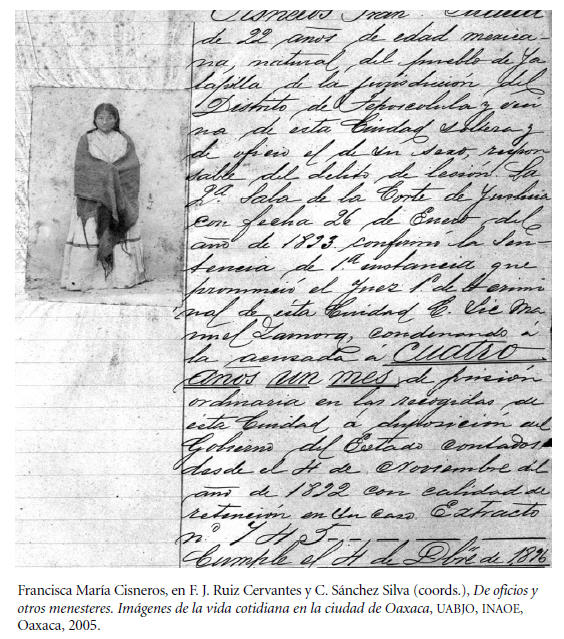 Cisneros Fran.
de 22 años de edad mexica-
na, natural, del pueblo de Ja-
lapilla, de la jurisdiccion del
Distrito de Teposcolula y veci-
na de esta Ciudad soltera y
de oficio el de su sexo, respon-
sable del delito de lesion. La
2.ª Sala de la Corte de Justicia
con fecha 26 de Enero del
año de 1893 confirmo la Sen-
tencia de 1ª instancia que
pronunció el Juez 1.º de lo crimi-
nal de esta Ciudad C. Lic Ma-
nuel Zamora, condenando á
la acusada a Cuatro
años un mes de prisión
ordinaria en las recogidas de
esta Ciudad á disposicion del
Gobierno del Estado contados
desde el 4 de Noviembre del
año de 1892 con calidad de
retencion en su caso. Extracto
nº 745
Cumple el 4 de Dbre de 1896
Francisca María Cisneros, en F. J. Ruiz Cervantes y C. Sánchez Silva (coords.), De oficios y
otros menesteres. Imágenes de la vida cotidiana en la ciudad de Oaxaca, UABJO, INAOE,
Oaxaca, 2005.